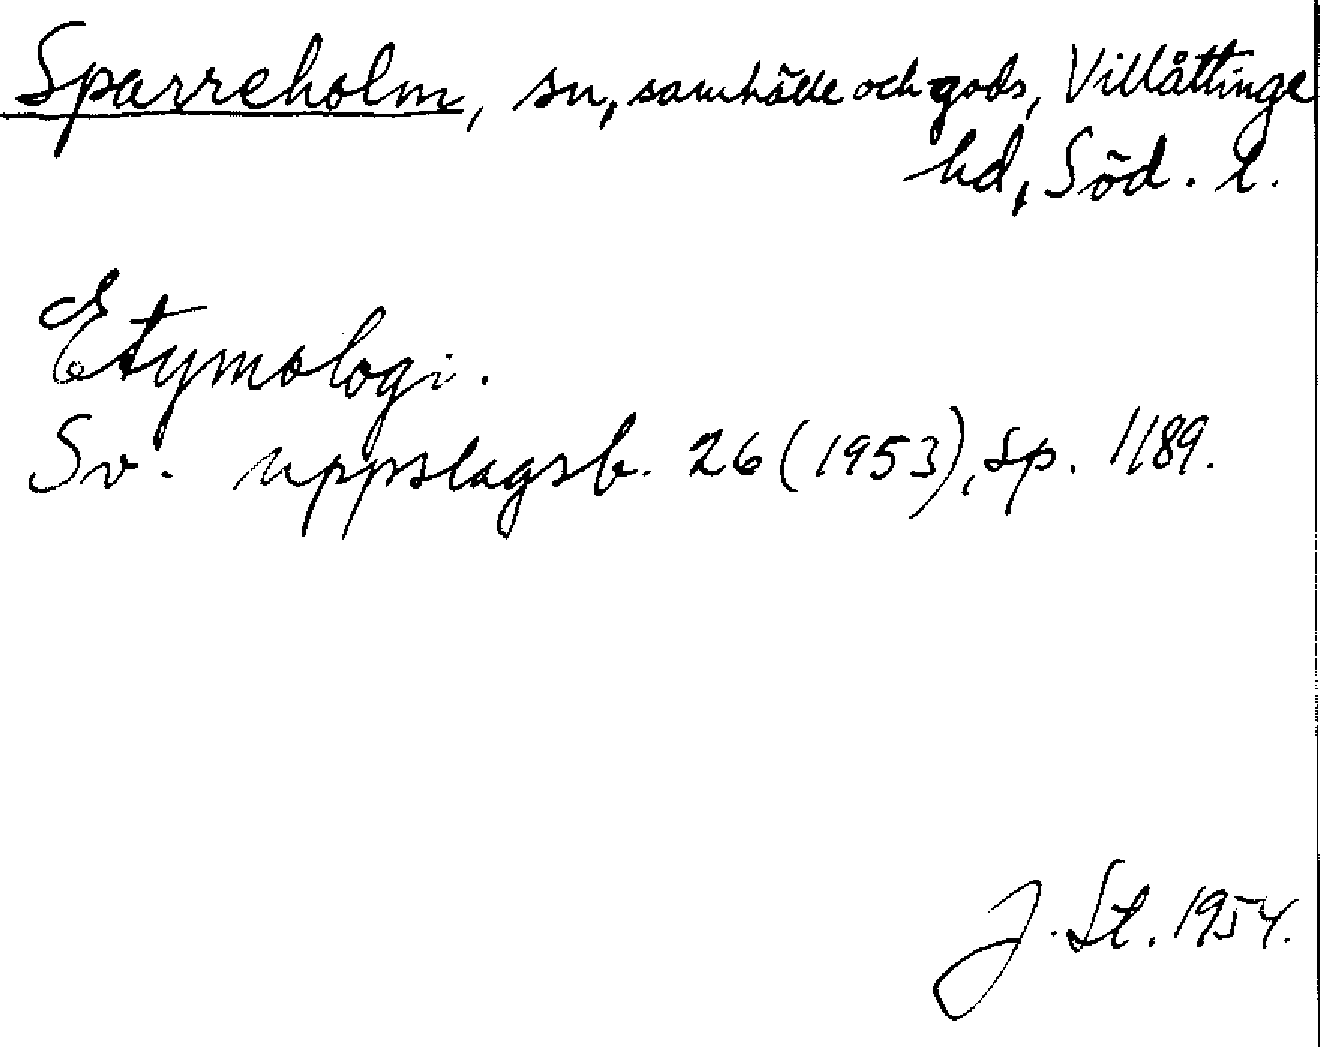 Sparreholm, sn, samhälle och gods, Villåttinge
hd, Söd. l.
Etymologi.
Sv. uppslagsb. 26 (1953), sp. 1189.
J. St. 1954.